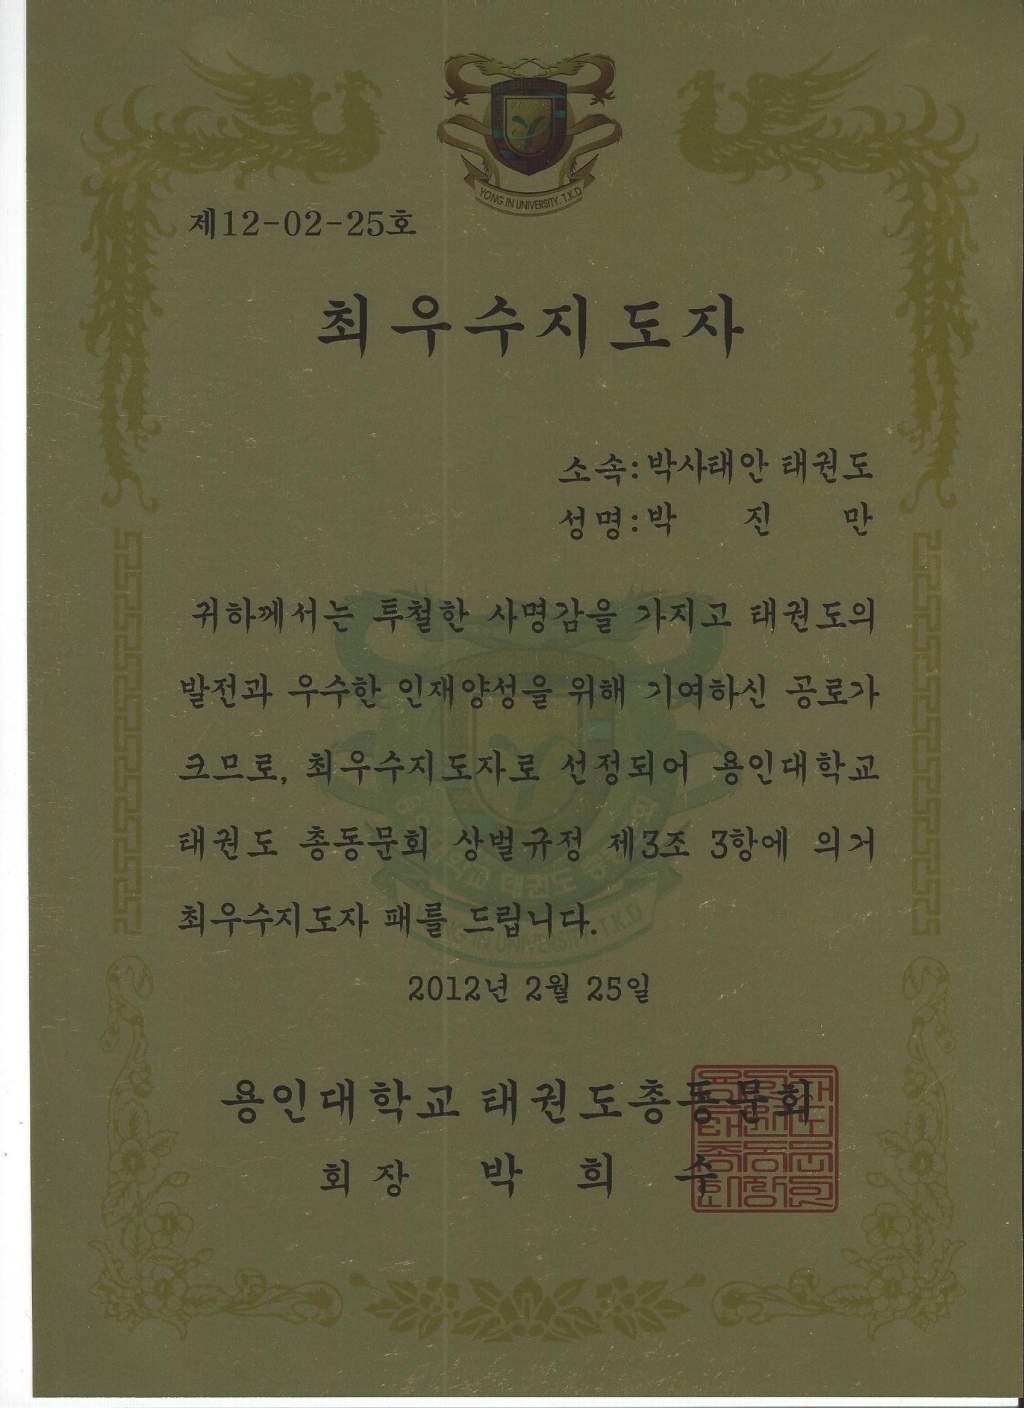 YONG IN UNIVERSITY. T.K.D
제12-02-25호
최우수지도자
소속:박사태안 태권도
성명:박 진 만
귀하께서는 투철한 사명감을 가지고 태권도의
발전과 우수한 인재양성을 위해 기여하신 공로가
크므로, 최우수지도자로 선정되어 용인대학교
태권도 총동문회 상벌규정 제3조 3항에 의거
최우수지도자 패를 드립니다.
2012년 2월 25일
용인대학교 태권도총동문회
회장 박 희 수